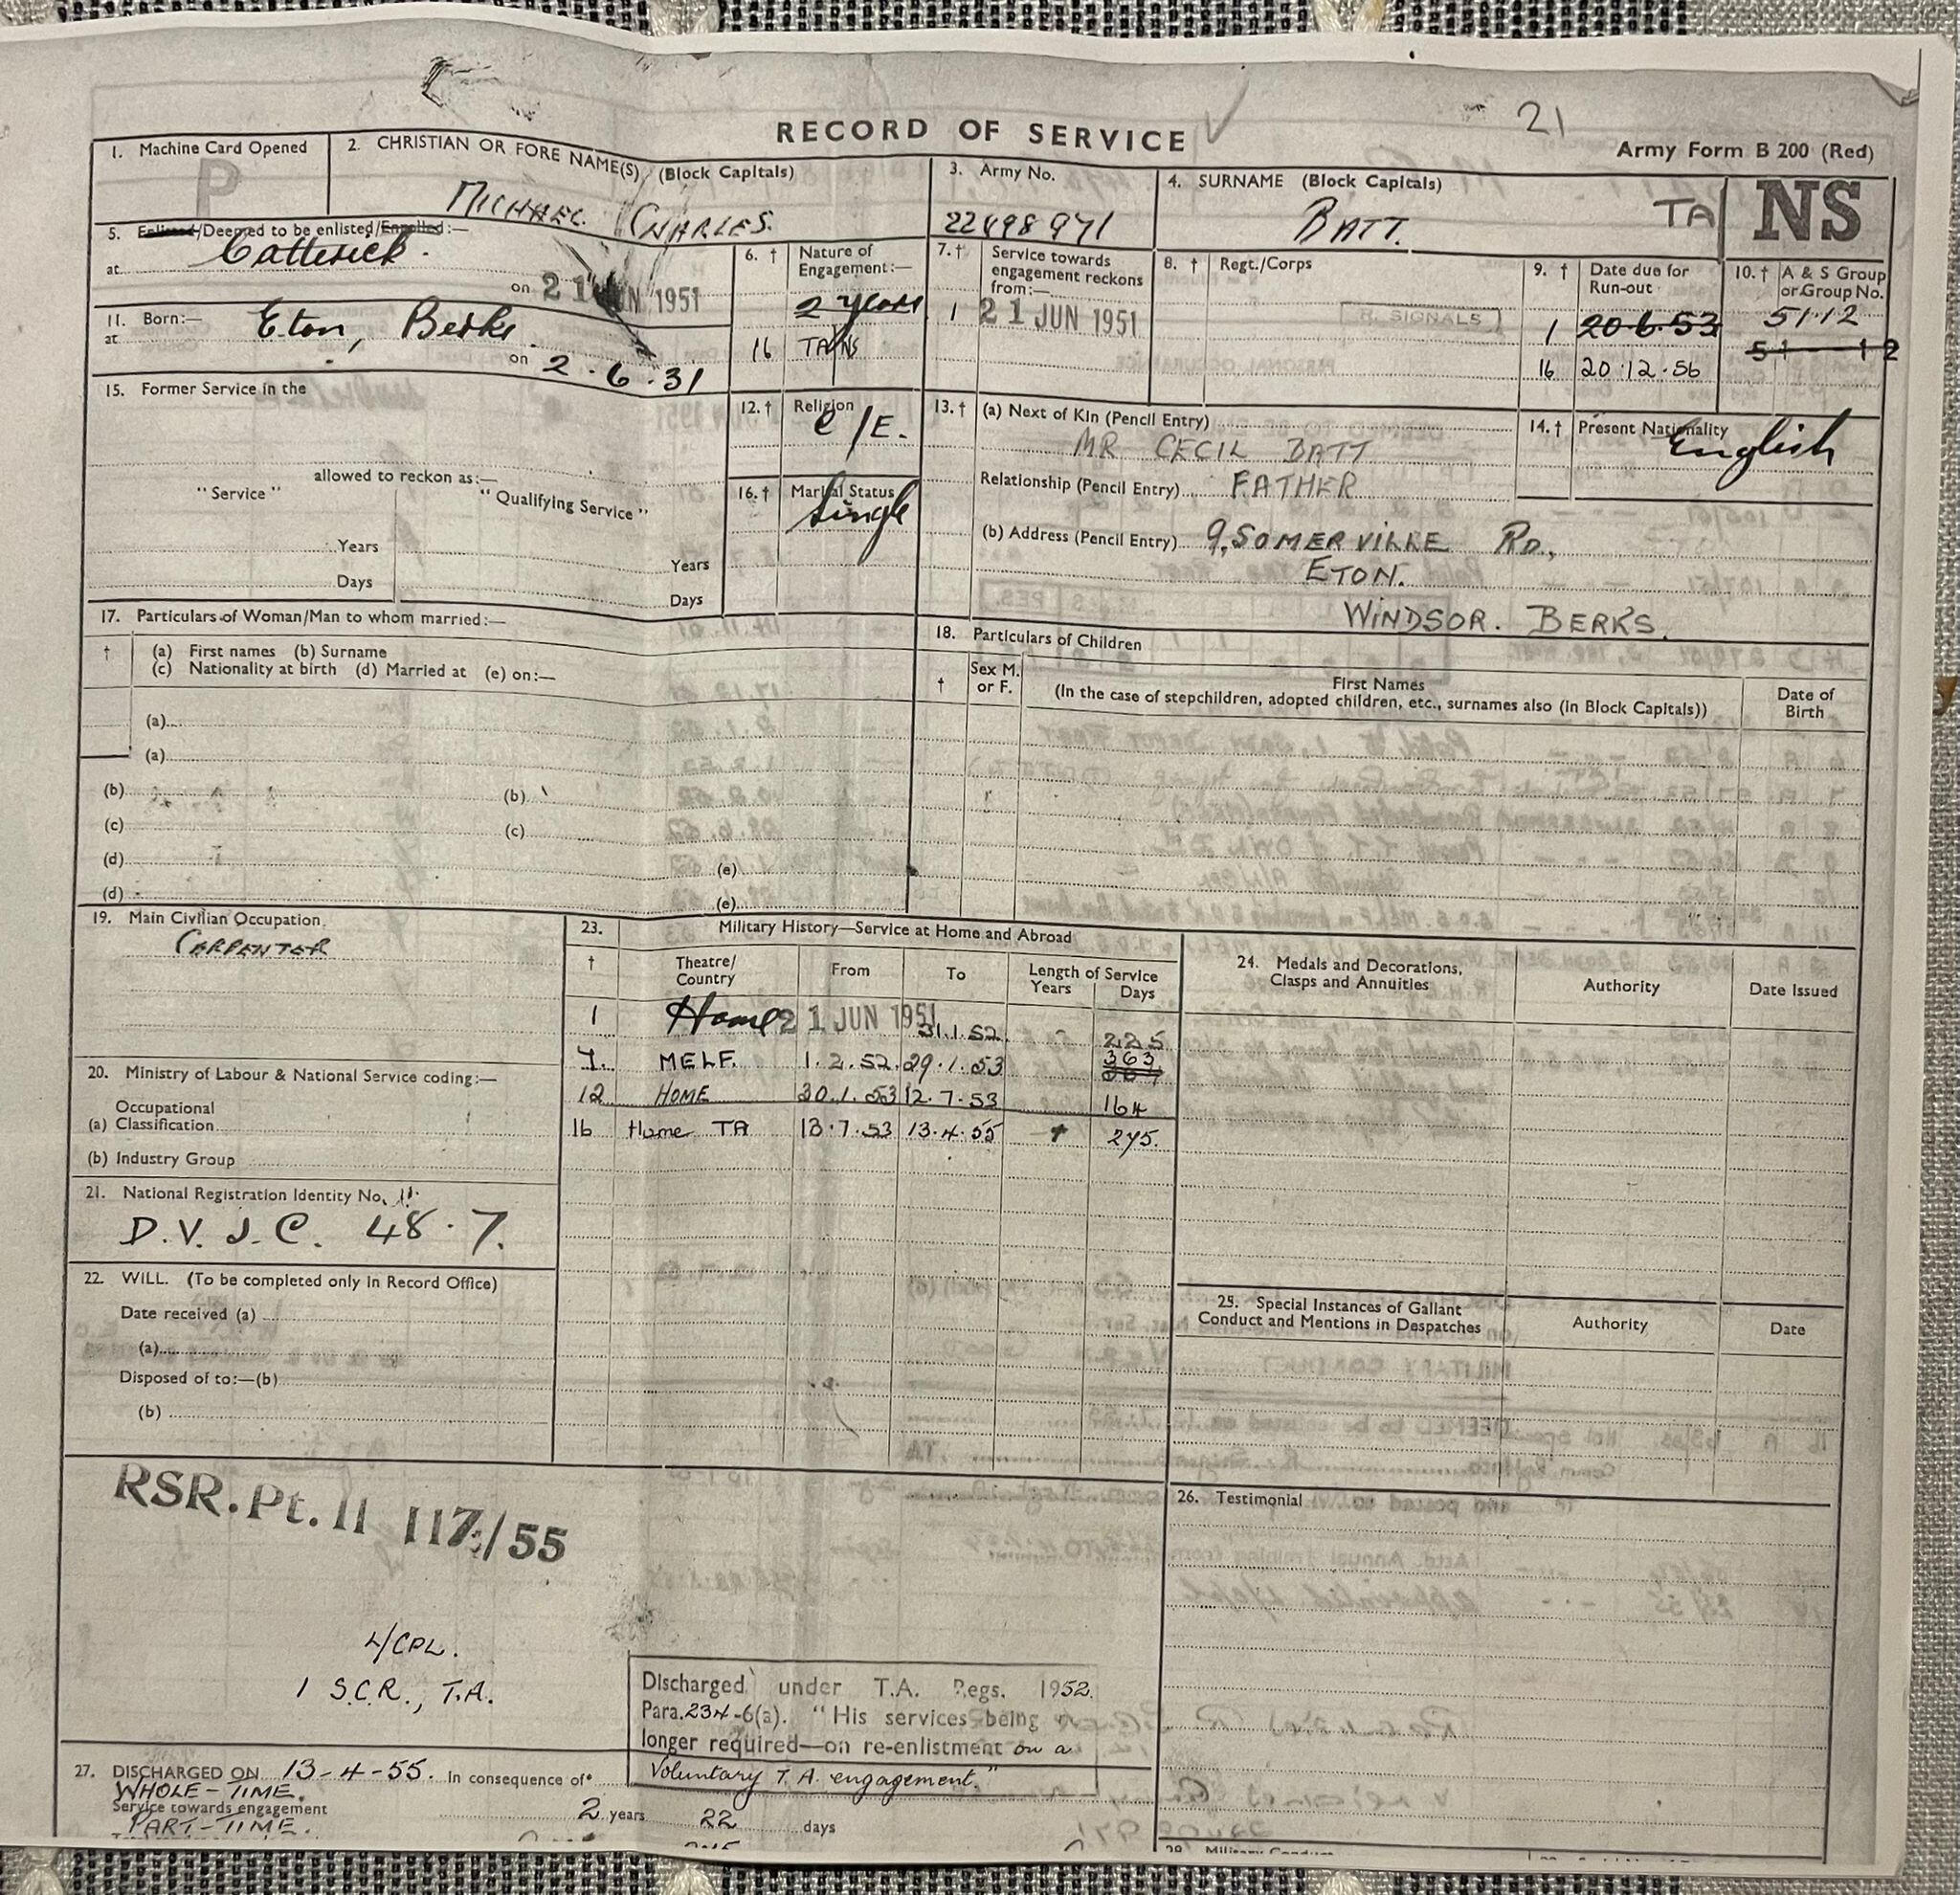 21
RECORD OF SERVICE
Army Form B 200 (Red)
1. Machine Card Opened
P
2. CHRISTIAN OR FORE NAME(S) (Block Capitals)
MICHAEL CHARLES.
3. Army No.
22498971
4. SURNAME (Block Capitals)
BATT.
TA
NS
5. Enlisted/Deemed to be enlisted/Enrolled:—
at Catterick.
on 21 JUN 1951
6. † Nature of Engagement:—
2 years
16 TA NS
7. † Service towards engagement reckons from:—
1 21 JUN 1951
8. † Regt./Corps
R. SIGNALS
9. † Date due for Run-out
1 20.6.53
16 20.12.56
10. † A & S Group or Group No.
51.12
51 12
11. Born:—
at Eton, Berks.
on 2.6.31
12. † Religion
C/E.
13. † (a) Next of Kin (Pencil Entry)
MR CECIL BATT
Relationship (Pencil Entry) FATHER
(b) Address (Pencil Entry) 9, SOMERVILLE RD.,
ETON.
WINDSOR. BERKS.
14. † Present Nationality
English
15. Former Service in the
allowed to reckon as:—
"Service" "Qualifying Service"
Years Years
Days Days
16. † Marital Status
Single
17. Particulars of Woman/Man to whom married:—
† (a) First names (b) Surname
(c) Nationality at birth (d) Married at (e) on:—
(a)
(a)
(b) (b)
(c) (c)
(d) (e)
(d) (e)
18. Particulars of Children
† Sex M. or F.
First Names
(In the case of stepchildren, adopted children, etc., surnames also (in Block Capitals))
Date of Birth
19. Main Civilian Occupation
CARPENTER
20. Ministry of Labour & National Service coding:—
Occupational
(a) Classification
(b) Industry Group
21. National Registration Identity No.
D.V.J.C. 48.7.
22. WILL. (To be completed only in Record Office)
Date received (a)
(a)
Disposed of to:—(b)
(b)
23. Military History—Service at Home and Abroad
† Theatre/Country From To Length of Service Years Days
1 Home 21 JUN 1951 31.1.52. 225
7. MELF. 1.2.52. 29.1.53 363
12 HOME 30.1.53 12.7.53 164
16 Home TA 13.7.53 13.4.55 1 275.
24. Medals and Decorations, Clasps and Annuities
Authority
Date Issued
25. Special Instances of Gallant Conduct and Mentions in Despatches
Authority
Date
26. Testimonial
RSR. Pt. II 117/55
L/CPL.
1 S.C.R., T.A.
Discharged under T.A. Regs. 1952.
Para. 234-6(a). "His services being
longer required—on re-enlistment on a
Voluntary T.A. engagement."
27. DISCHARGED ON 13-4-55. In consequence of*
WHOLE-TIME.
Service towards engagement 2 years 22 days
PART-TIME.
Military Conduct